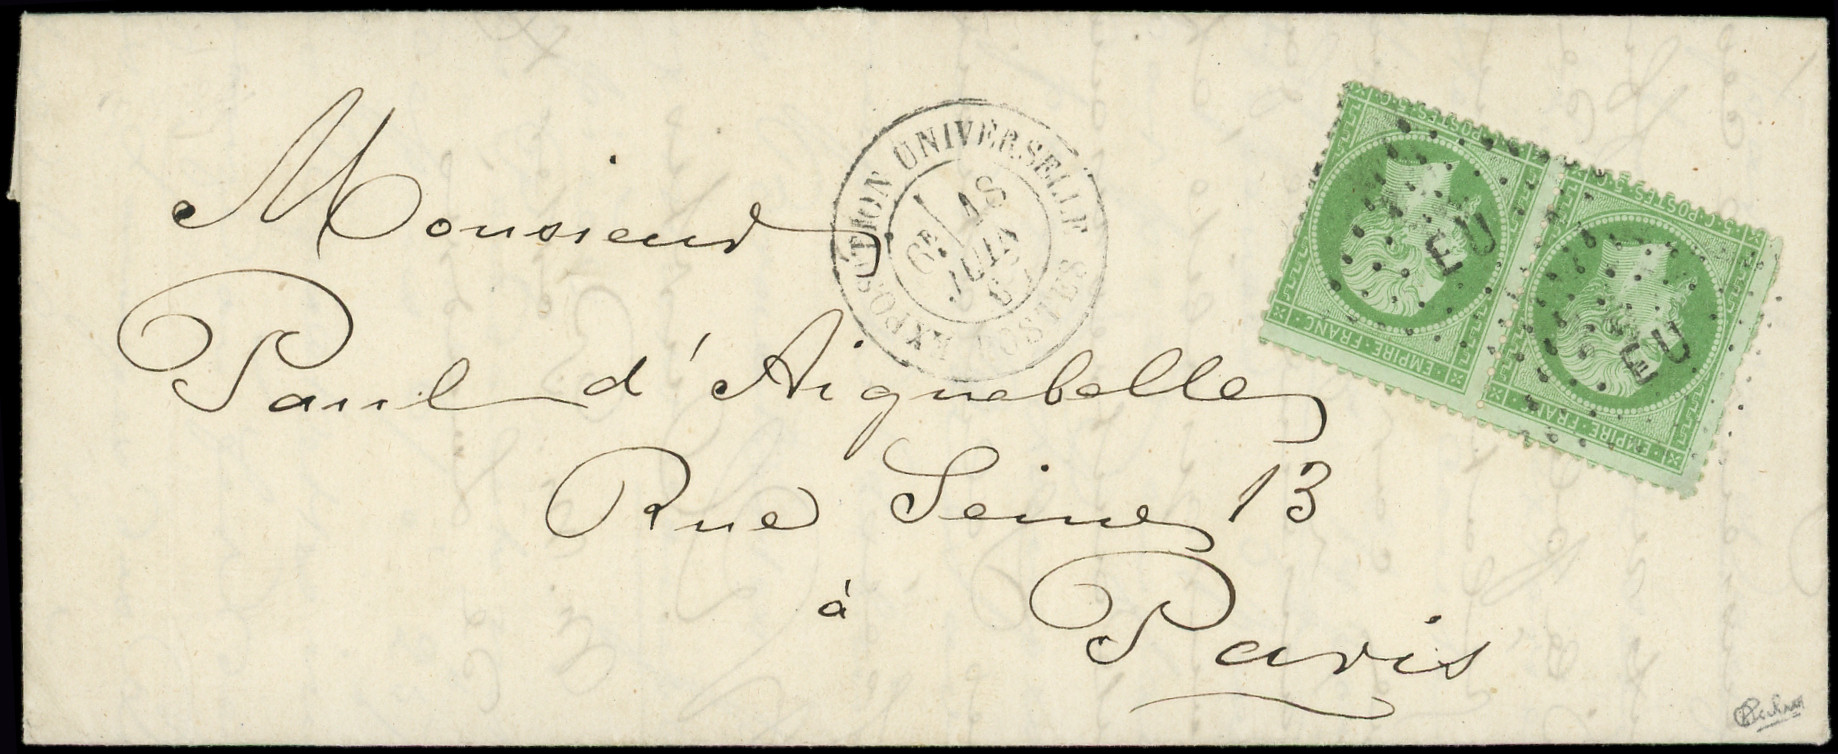 Monsieur
Paul d'Aiguebelle
Rue Seine 13
à Paris
EXPOSITION UNIVERSELLE
POSTES
6E
18
JUIN
67
5 C. POSTES 5 C.
EMPIRE FRANC
EU
5 C. POSTES 5 C.
EMPIRE FRANC
EU